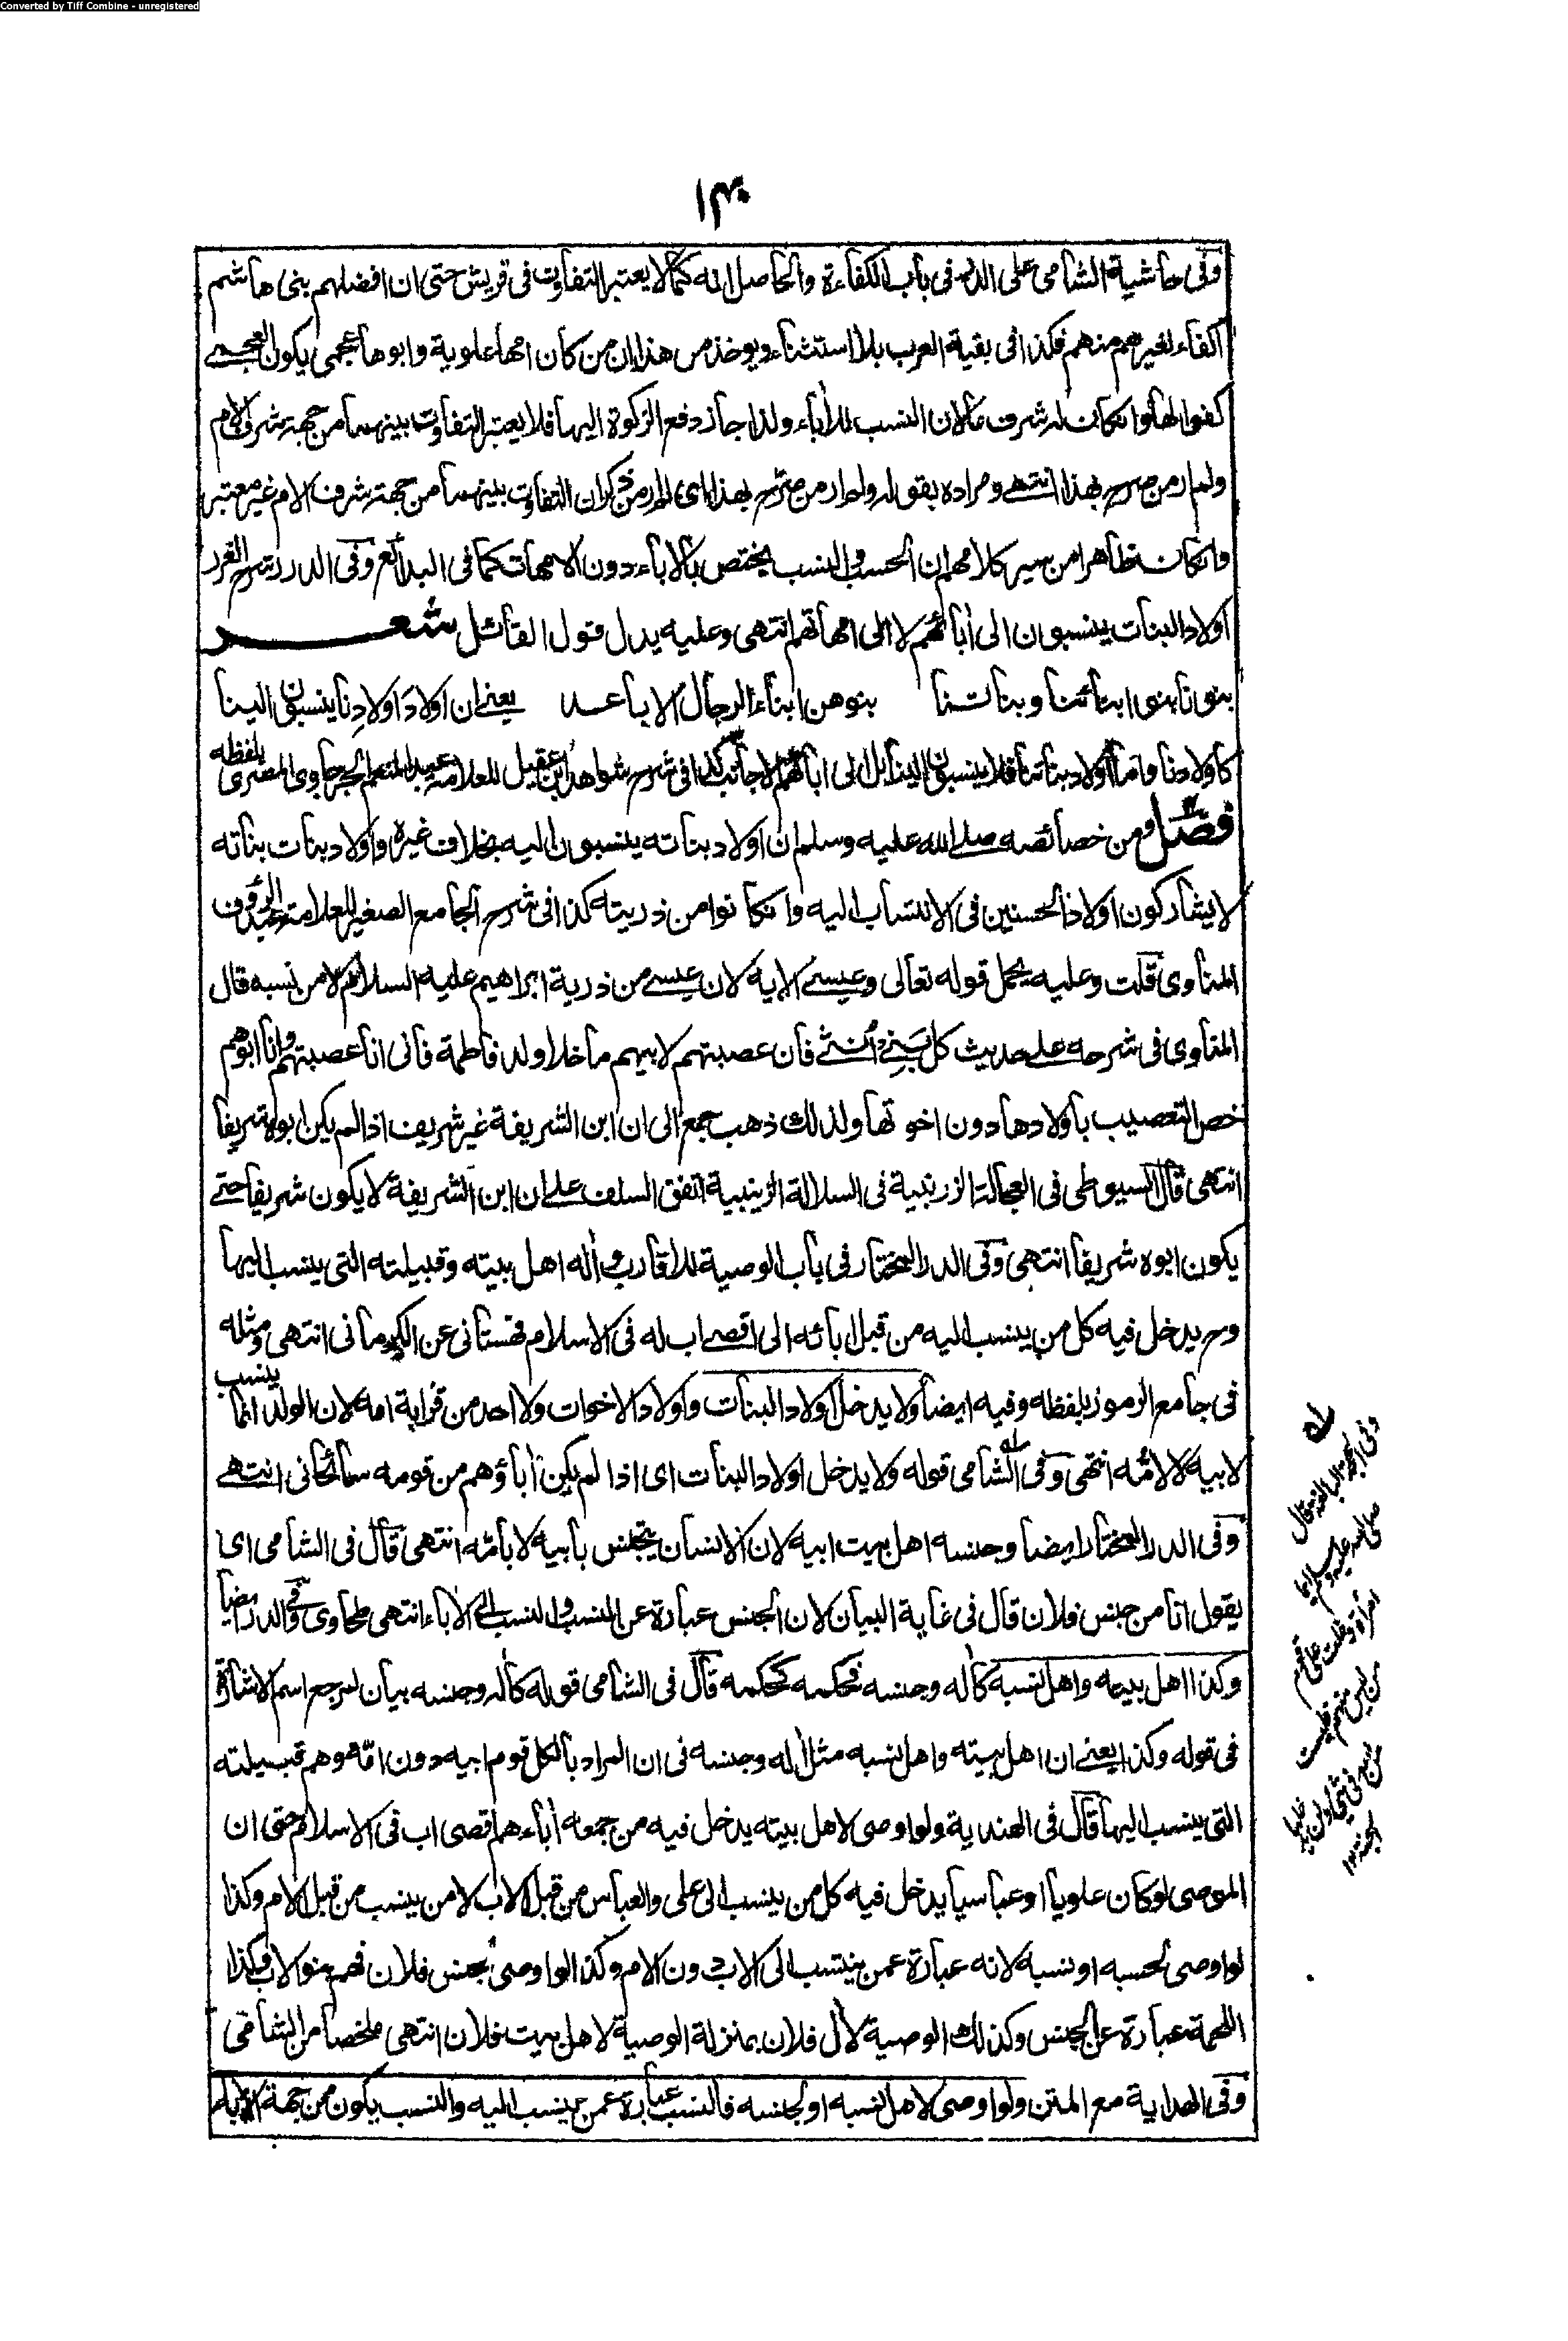 Converted by Tiff Combine - unregistered
١٣٠
وفى حاشية الشامى على الدر فى باب الكفاءة والحاصل انه كما لا يعتبر التفاوت فى قريش حتى ان افضلهم بنى هاشم
اكفاء لغيرهم منهم فكذا فى بقية العرب بلا استثناء ويوخذ من هذا ان من كان امها علوية وابوها عجمى يكون العجمى
كفوا لها وان كان لها شرف ما لان النسب للاباء ولذا جاز دفع الزكوة اليها فلا يعتبر التفاوت بينهما من جهة شرف الام
ولم ار من صرح بهذا انتهى ومراده بقوله ولم ار من صرح بهذا اى لم ار من ذكر ان التفاوت بينهما من جهة شرف الام غير معتبر
وان كان ظاهرا من سير كلامهم ان الحسب والنسب يختص بالاباء دون الامهات كما فى البدائع وفى الدرر شرح الغرر
اولاد البنات ينسبون الى أبائهم لا الى امهاتهم انتهى وعليه يدل قول القائل شعر
بنونا بنوى ابنائنا وبناتنا بنوهن ابناء الرجال الاباعد يعنى ان اولاد اولادنا ينسبون الينا
كاولادنا واما اولاد بناتنا فلا ينسبون الينا بل الى ابائهم الاجانب كذا فى شرح شواهد ابن عقيل للعلامة عبد المنعم الجرجاوى المصرى بلفظه
فصل ومن خصائصه صلى الله عليه وسلم ان اولاد بناته ينسبون اليه بخلاف غيره واولاد بنات بناته
لا يشاركون اولاد الحسنين فى الانتساب اليه وان كانوا من ذريته كذا فى شرح الجامع الصغير للعلامة عبد الرؤف
المناوى قلت وعليه يحمل قوله تعالى وعيسى الاية لان عيسى من ذرية ابراهيم عليه السلام لا من نسبه قال
المناوى فى شرحه على حديث كل بنى أنثى فان عصبتهم لابيهم ما خلا ولد فاطمة فانى انا عصبتهم وانا ابوهم
خص التعصيب باولادها دون اخوتها ولذلك ذهب جمع الى ان ابن الشريفة غير شريف اذا لم يكن ابوه شريفا
انتهى قال السيوطى فى العجالة الزرنبية فى السلالة الزينبية اتفق السلف على ان ابن الشريفة لا يكون شريفا حتى
يكون ابوه شريفا انتهى وفى الدر المختار فى باب الوصية للاقارب و أله اهل بيته وقبيلته التى ينسب اليها
وح يدخل فيه كل من ينسب اليه من قبل ابائه الى اقصى اب له فى الاسلام قهستانى عن الكرمانى انتهى ومثله
فى جامع الرموز بلفظه وفيه ايضا ولا يدخل اولاد البنات واولاد الاخوات ولا احد من قرابة امه لان الولد انما ينسب
لابيه لا لامّه انتهى وفى الشامى قوله ولا يدخل اولاد البنات اى اذا لم يكن أباؤهم من قومه سائحانى انتهى
وفى الدر المختار ايضا وجنسه اهل بيت ابيه لان الانسان يتجنس بابيه لا بامّه انتهى قال فى الشامى اى
يقول انا من جنس فلان قال فى غاية البيان لان الجنس عبارة عن النسب والنسب الى الاباء انتهى طحاوى وفى الدر ايضا
وكذا اهل بيته واهل نسبه كأله وجنسه فحكمه كحكمه قال فى الشامى قوله كأله وجنسه بيان لمرجع اسم الاشارة
فى قوله وكذا يعنى ان اهل بيته واهل نسبه مثل أله وجنسه فى ان المراد بالكل قوم ابيه دون امّه وهم قبيلته
التى ينسب اليها قال فى الهندية ولو اوصى لاهل بيته يدخل فيه من جمعه أباءهم اقصى اب فى الاسلام حتى ان
الموصى لو كان علويا او عباسيا يدخل فيه كل من ينسب الى على والعباس من قبل الاب لا من ينسب من قبل الام وكذا
لو اوصى لحسبه او نسبه لانه عبارة عمن ينتسب الى الاب دون الام وكذا لو اوصى لجنس فلان فهم بنو الاب وكذا
اللحمة عبارة عن الجنس وكذلك الوصية لأل فلان بمنزلة الوصية لاهل بيت فلان انتهى ملخصا من الشامى
وفى الهداية مع المتن ولو اوصى لاهل نسبه او لجنسه فالنسب عبارة عمن ينسب اليه والنسب يكون من جهة الأباء
صلى الله عليه وسلم ايما
امرأة ادخلت على قوم
من ليس منهم فليست
من الله فى شئ ولن يدخلها
الجنة ١٢